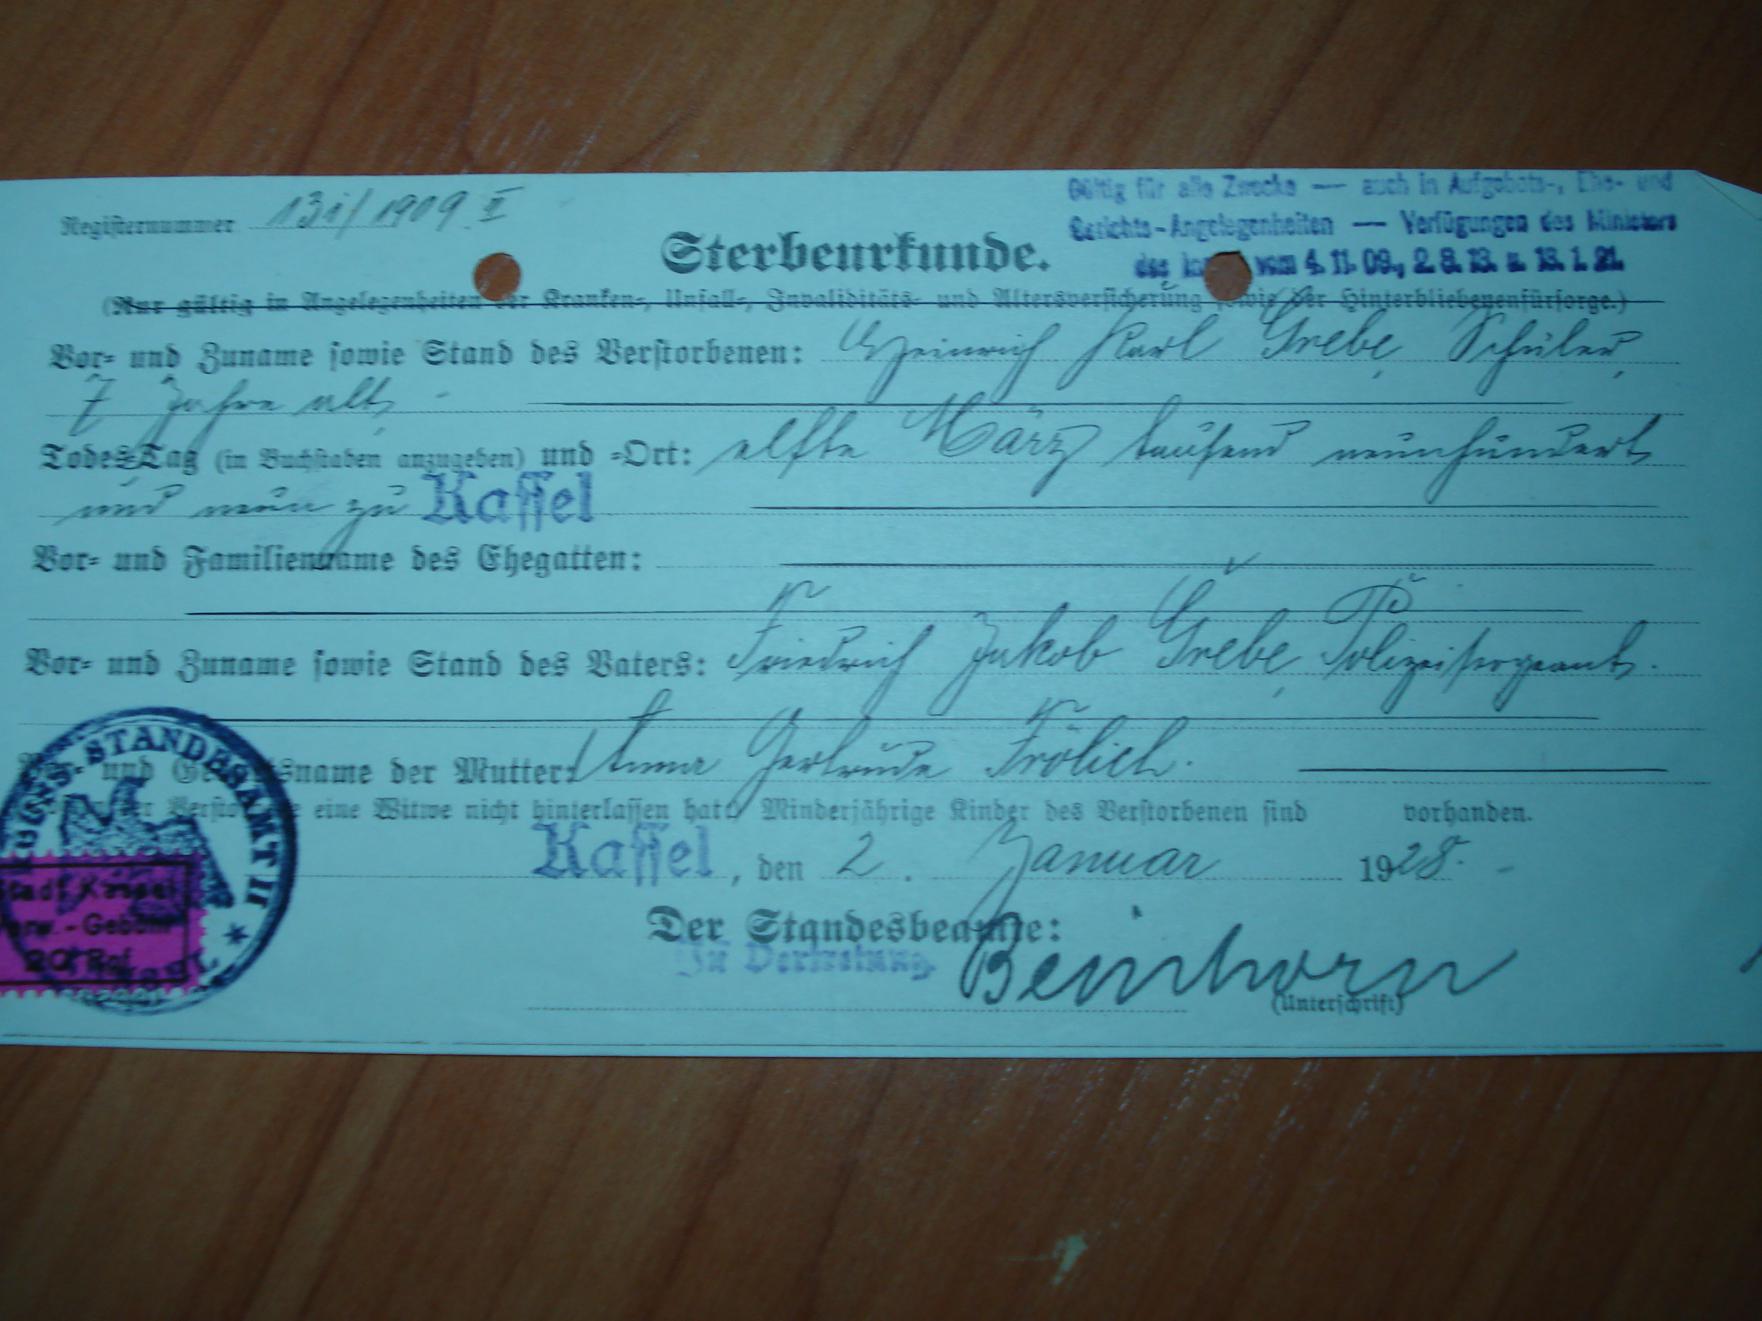 Registernummer 131/1909 II
Gültig für alle Zwecke — auch in Aufgebots-, Ehe- und
Gerichts-Angelegenheiten — Verfügungen des Ministers
des vom 4. 11. 09., 2. 8. 13. u. 13. 1. 21.
Sterbeurkunde.
(Nur gültig in Angelegenheiten der Kranken-, Unfall-, Invaliditäts- und Altersversicherung sowie der Hinterbliebenenfürsorge.)
Vor- und Zuname sowie Stand des Verstorbenen: Heinrich Karl Grebe, Schüler,
7 Jahre alt,
Todes-Tag (in Buchstaben anzugeben) und -Ort: elfte März tausend neunhundert
und neun zu Kassel
Vor- und Familienname des Ehegatten:
Vor- und Zuname sowie Stand des Vaters: Friedrich Jakob Grebe, Polizeisergeant.
und name der Mutter: Anna Gertrude Frölich.
eine Witwe nicht hinterlassen hat. Minderjährige Kinder des Verstorbenen sind vorhanden.
Kassel, den 2. Januar 1928.
Der Standesbeamte:
In Vertretung Beinhorn
(Unterschrift)
STANDESAMT II
Stadt Kassel
20 Rpf